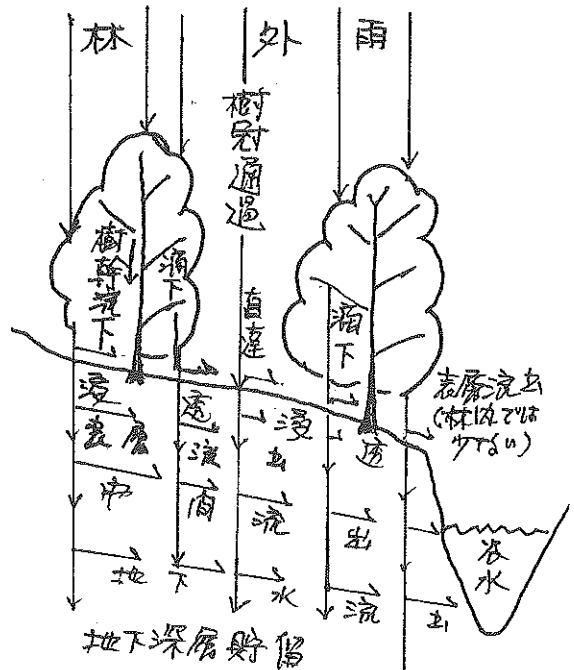 林外雨
樹冠通過
樹幹流下
滴下
直達
滴下
表層流出
(林内では
少ない)
浸透浸透
表層流出
中間流出
地下水流出
流水
地下深層貯留